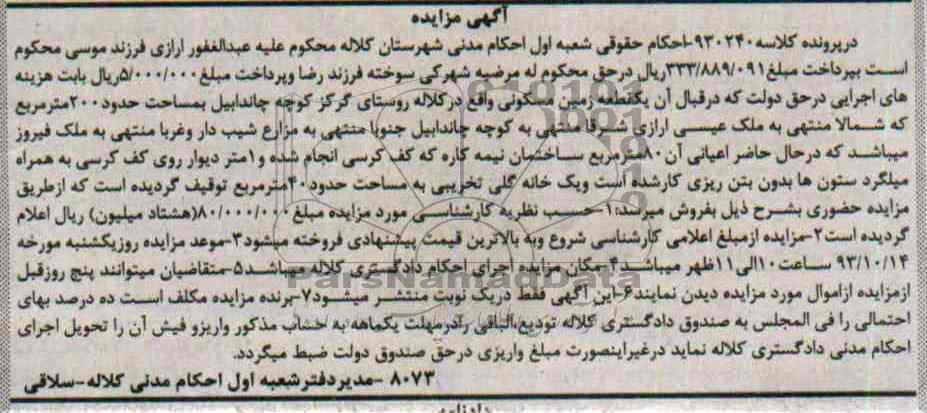 آگهی مزایده
درپرونده کلاسه ۹۳۰۲۴۰-احکام حقوقی شعبه اول احکام مدنی شهرستان کلاله محکوم علیه عبدالغفور ارازی فرزند موسی محکوم
است بپرداخت مبلغ ۳۳۳/۸۸۹/۰۹۱ریال درحق محکوم له مرضیه شهرکی سوخته فرزند رضا وپرداخت مبلغ ۵/۰۰۰/۰۰۰ریال بابت هزینه
های اجرایی درحق دولت که درقبال آن یکقطعه زمین مسکونی واقع درکلاله روستای گرکز کوچه چاندابیل بمساحت حدود۲۰۰مترمربع
که شمالا منتهی به ملک عیسی ارازی شرقا منتهی به کوچه چاندابیل جنوبا منتهی به مزارع شیب دار وغربا منتهی به ملک فیروز
میباشد که درحال حاضر اعیانی آن ۸۰مترمربع ساختمان نیمه کاره که کف کرسی انجام شده و۱متر دیوار روی کف کرسی به همراه
میلگرد ستون ها بدون بتن ریزی کارشده است ویک خانه گلی تخریبی به مساحت حدود۴۰مترمربع توقیف گردیده است که ازطریق
مزایده حضوری بشرح ذیل بفروش میرسد:۱-حسب نظریه کارشناسی مورد مزایده مبلغ ۸۰/۰۰۰/۰۰۰(هشتاد میلیون) ریال اعلام
گردیده است۲-مزایده ازمبلغ اعلامی کارشناسی شروع وبه بالاترین قیمت پیشنهادی فروخته میشود۳-موعد مزایده روزیکشنبه مورخه
۹۳/۱۰/۱۴ ساعت ۱۰الی۱۱ظهر میباشد۴-مکان مزایده اجرای احکام دادگستری کلاله میباشد۵-متقاضیان میتوانند پنج روزقبل
ازمزایده ازاموال مورد مزایده دیدن نمایند۶-این آگهی فقط دریک نوبت منتشر میشود۷-برنده مزایده مکلف است ده درصد بهای
احتمالی را فی المجلس به صندوق دادگستری کلاله تودیع،الباقی رادرمهلت یکماهه به حساب مذکور واریزو فیش آن را تحویل اجرای
احکام مدنی دادگستری کلاله نماید درغیراینصورت مبلغ واریزی درحق صندوق دولت ضبط میگردد.
۸۰۷۳ -مدیردفترشعبه اول احکام مدنی کلاله-سلاقی
ParsNamadData